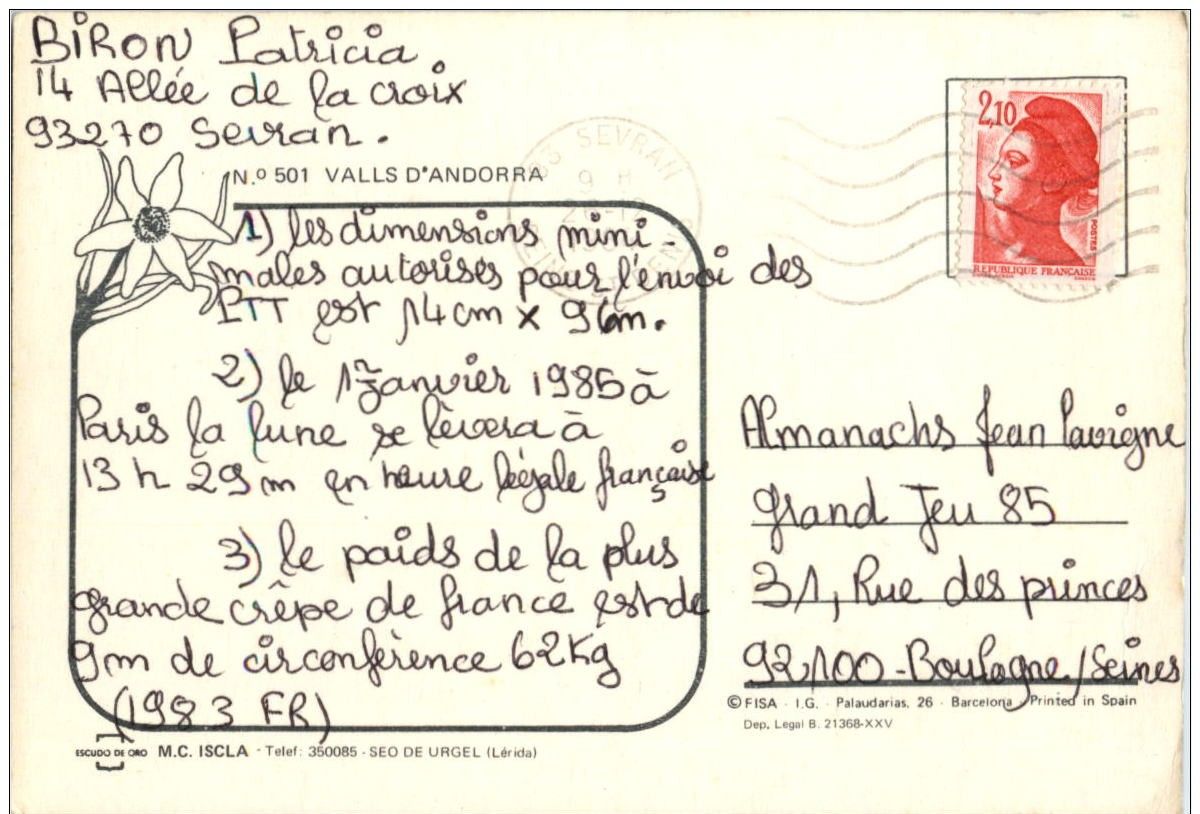 BIRON Patricia
14 Allée de la croix
93270 Sevran.
N.º 501 VALLS D'ANDORRA
93 SEVRAN
1) les dimensions mini-
males autorisés pour l'envoi des
PTT est 14cm x 9cm.
2) le 1er Janvier 1985 à
Paris la lune se lèvera à
13 h 29m en heure légale française
3) le poids de la plus
grande crêpe de france est de
9m de circonférence 62Kg
(1983 FR)
ESCUDO DE ORO M.C. ISCLA - Telef: 350085 - SEO DE URGEL (Lérida)
2,10
POSTES
REPUBLIQUE FRANCAISE
Almanachs Jean Lavigne
grand Jeu 85
31, Rue des princes
92100 - Boulogne / Seines
© FISA - I.G. - Palaudarias, 26 - Barcelona - Printed in Spain
Dep. Legal B. 21368-XXV